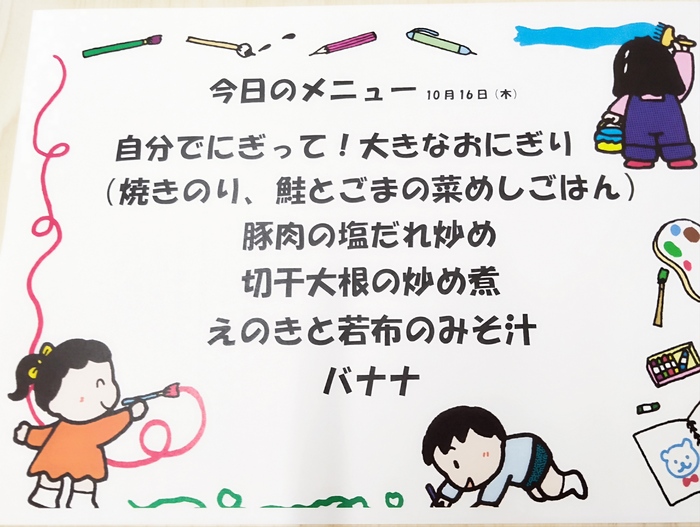 今日のメニュー 10月16日（木）
自分でにぎって！大きなおにぎり
（焼きのり、鮭とごまの菜めしごはん）
豚肉の塩だれ炒め
切干大根の炒め煮
えのきと若布のみそ汁
バナナ